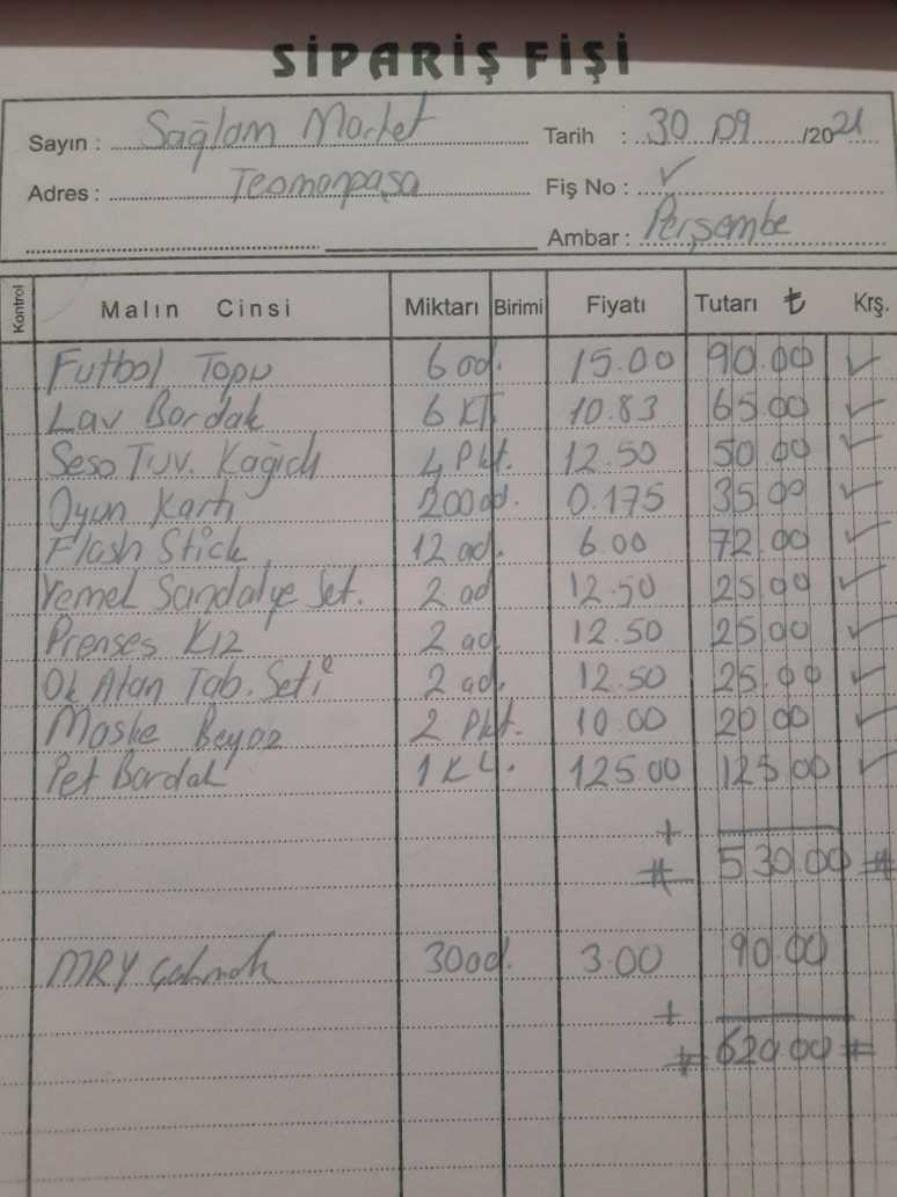 SİPARİŞ FİŞİ
Sayın : Sağlam Market Tarih : 30 09 /2021
Adres : Teomanpaşa Fiş No : ✓
Ambar : Perşembe
Kontrol Malın Cinsi Miktarı Birimi Fiyatı Tutarı ₺ Krş.
Futbol Topu 6 ad. 15.00 90.00 ✓
Lav Bardak 6 KT. 10.83 65 00 ✓
Seso Tuv. Kağıdı 4 Pkt. 12.50 50.00 ✓
Oyun Kartı 200 ad. 0.175 35.00 ✓
Flash Stick 12 ad. 6.00 72.00 ✓
Yemek Sandalye Set. 2 ad 12.50 25.00 ✓
Prenses Kız 2 ad 12.50 25.00 ✓
Ok Atan Tab. Seti 2 ad. 12.50 25.00 ✓
Maske Beyaz 2 Pkt. 10.00 20 00 ✓
Pet Bardak 1 KL. 125 00 125 00 ✓
+
# 530.00 #
MRY Çakmak 30 ad. 3.00 90.00
+
# 620.00 #